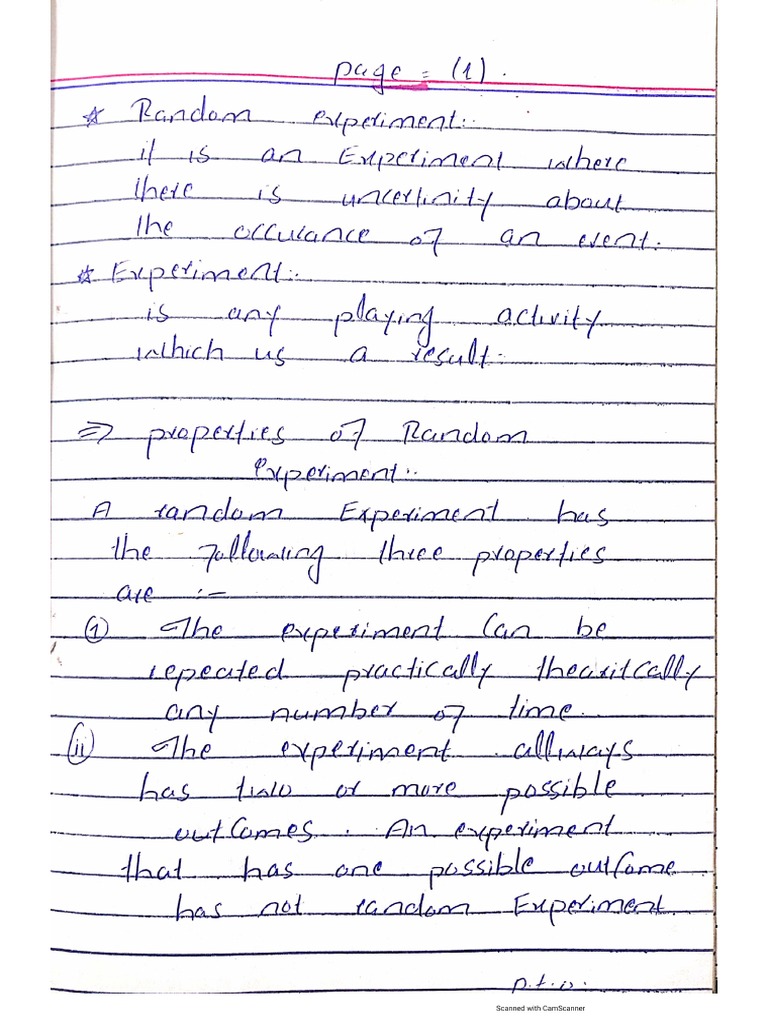 page = (1).
☆ Random experiment:.
it is an Experiment where
there is uncertinity about
the occurance of an event.
☆ Experiment:.
is any playing activity
which us a result.
⇒ properties of Random
experiment:.
A random Experiment has
the following three properties
are :-
(i) The experiment Can be
repeated practically thearitcally
any number of time.
(ii) The experiment allways
has two or more possible
outComes. An experiment
that has one possible outCome
has not random Experiment.
p.t.o.
Scanned with CamScanner